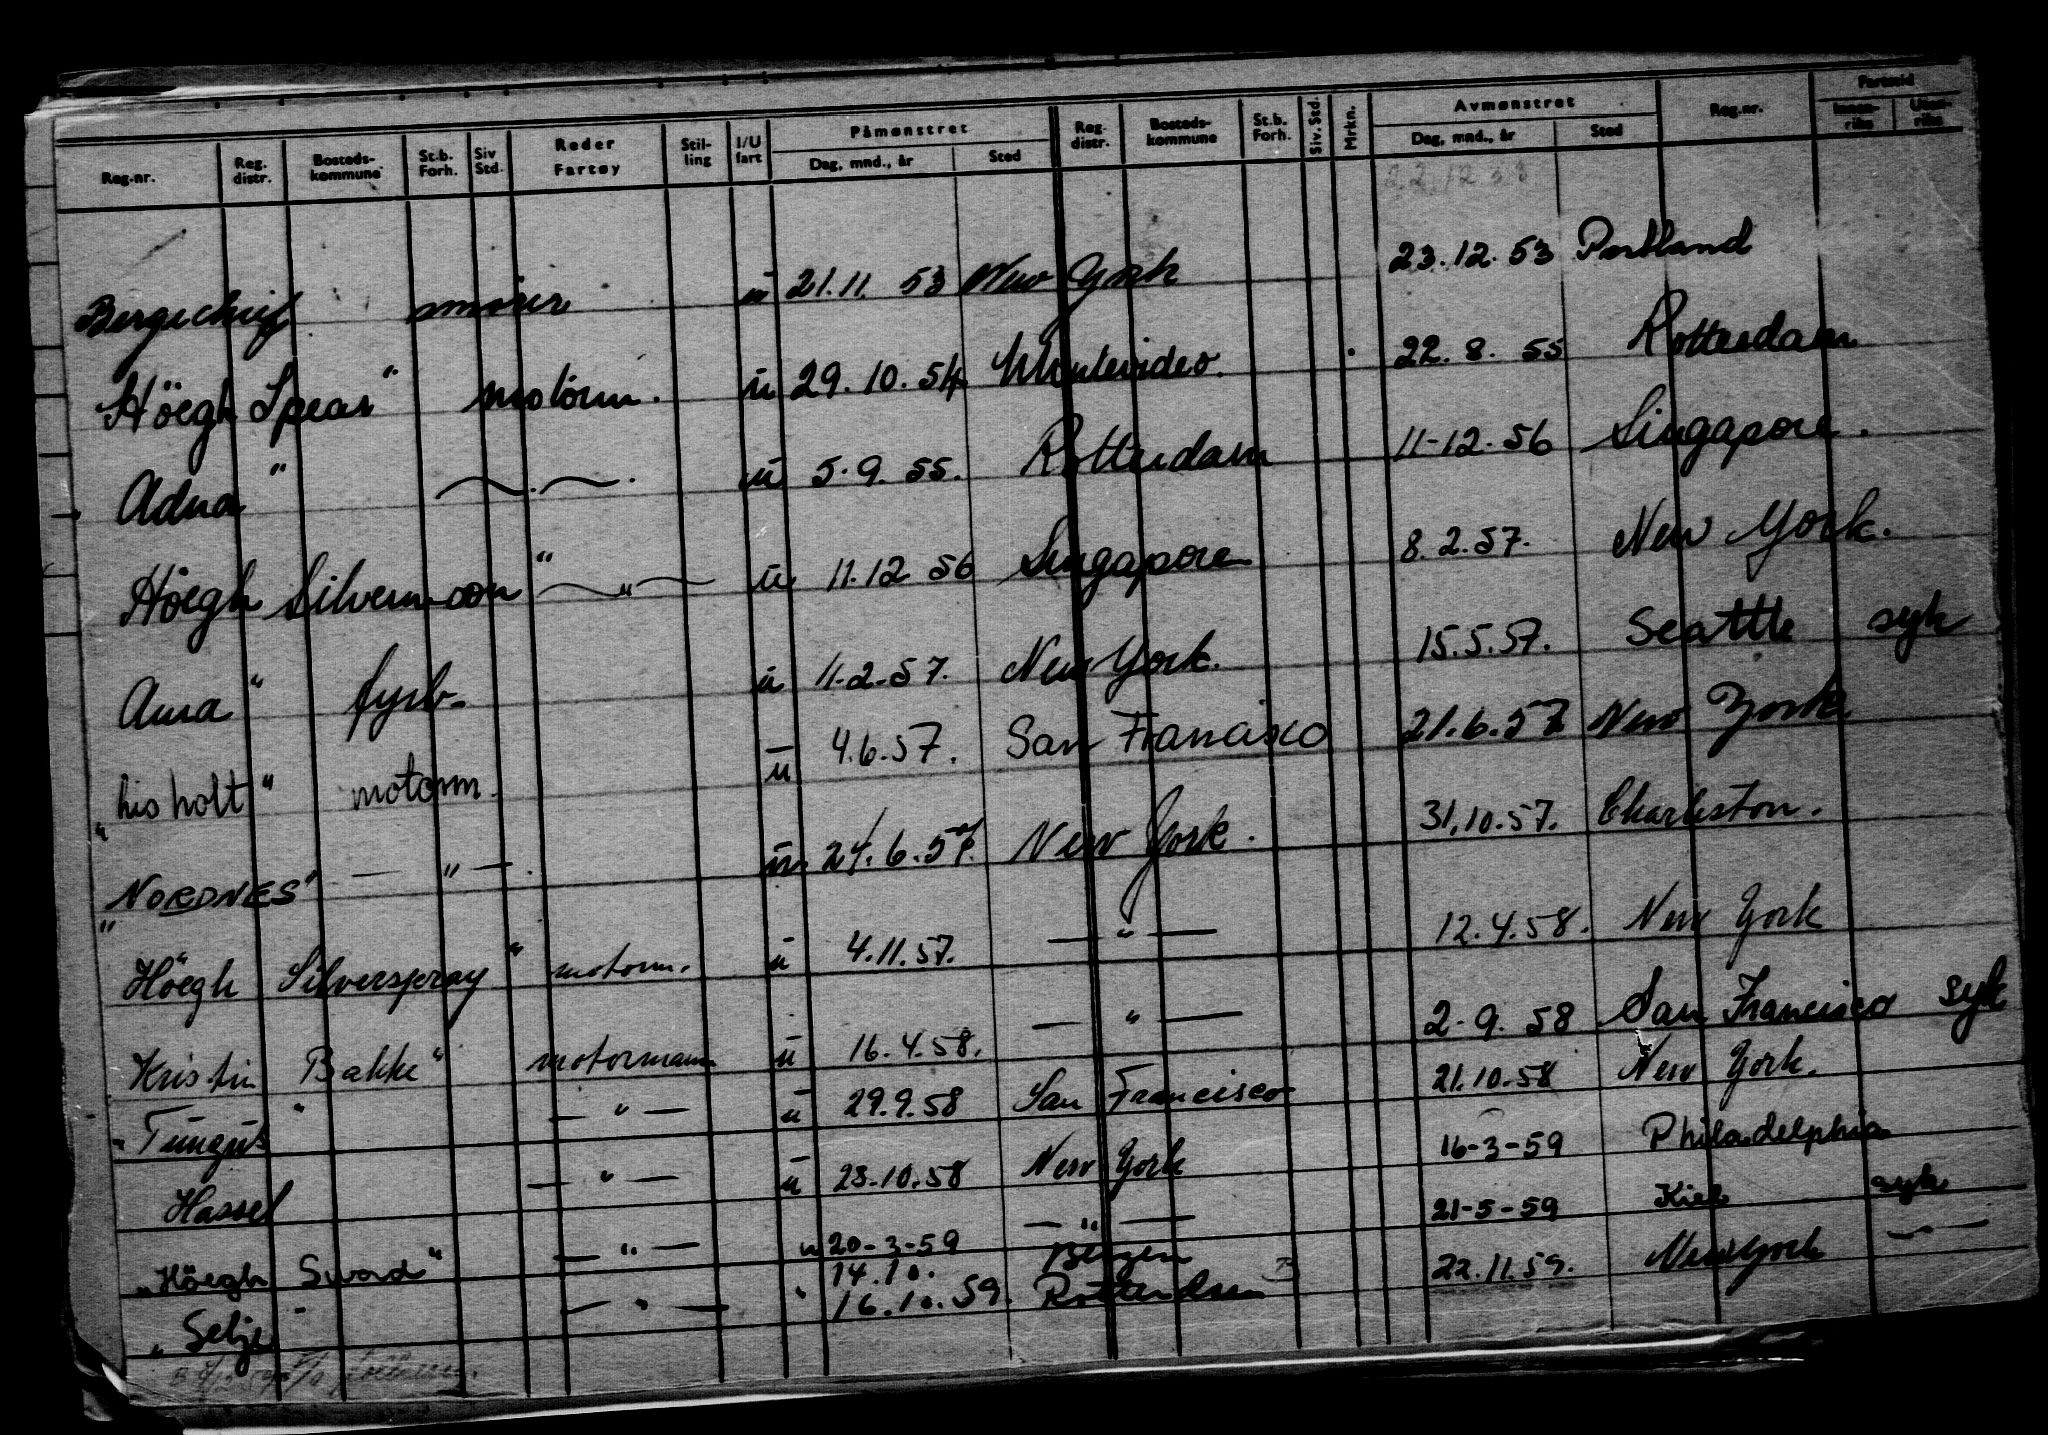 Påmønstret Avmønstret Partseid
Reg.-nr. Reg. distr. Bosteds-kommune St.b. Forh. Siv Std. Reder Fartøy Stil-ling I/U fart Dag, mnd., år Sted Reg. distr. Bosteds-kommune St.b. Forh. Siv. Std. Mrkn. Dag, mnd., år Sted Reg.nr. Innen-riks Uten-riks
Bergechief smører u 21.11. 53 New York 23.12.53 Portland
Höegh Spear" motorm. u 29.10.54 Montevideo. 22.8.55 Rotterdam
Adna" u 5.9.55. Rotterdam 11-12.56 Singapore.
Höegh Silvermoon" — " — u 11.12.56 Singapore 8.2.57. New York.
Anna" fyrb. u 11.2.57. New York. 15.5.57. Seattle syk
"his holt" motorm. u 4.6.57. San Francisco 21.6.57 New York
"NORDNES" — " — . u 24.6.57. New York. 31.10.57. Charleston.
Höegh Silverspray" motorm. u 4.11.57. — " — 12.4.58. New York
Kristin Bakke" motormann u 16.4.58. — " — 2.9.58 San Francisco syk
"Tungus" — " — u 29.9.58 San Francisco 21.10.58 New York.
Hassel — " — u 23.10.58 New York 16-3-59 Philadelphia
"Höegh Sword" — " — u 20-3-59 — " — 21-5-59 Kiel syk
14.10. Bergen
"Selje" — " — " 16.10.59. Rotterdam 22.11.59. New York — " —